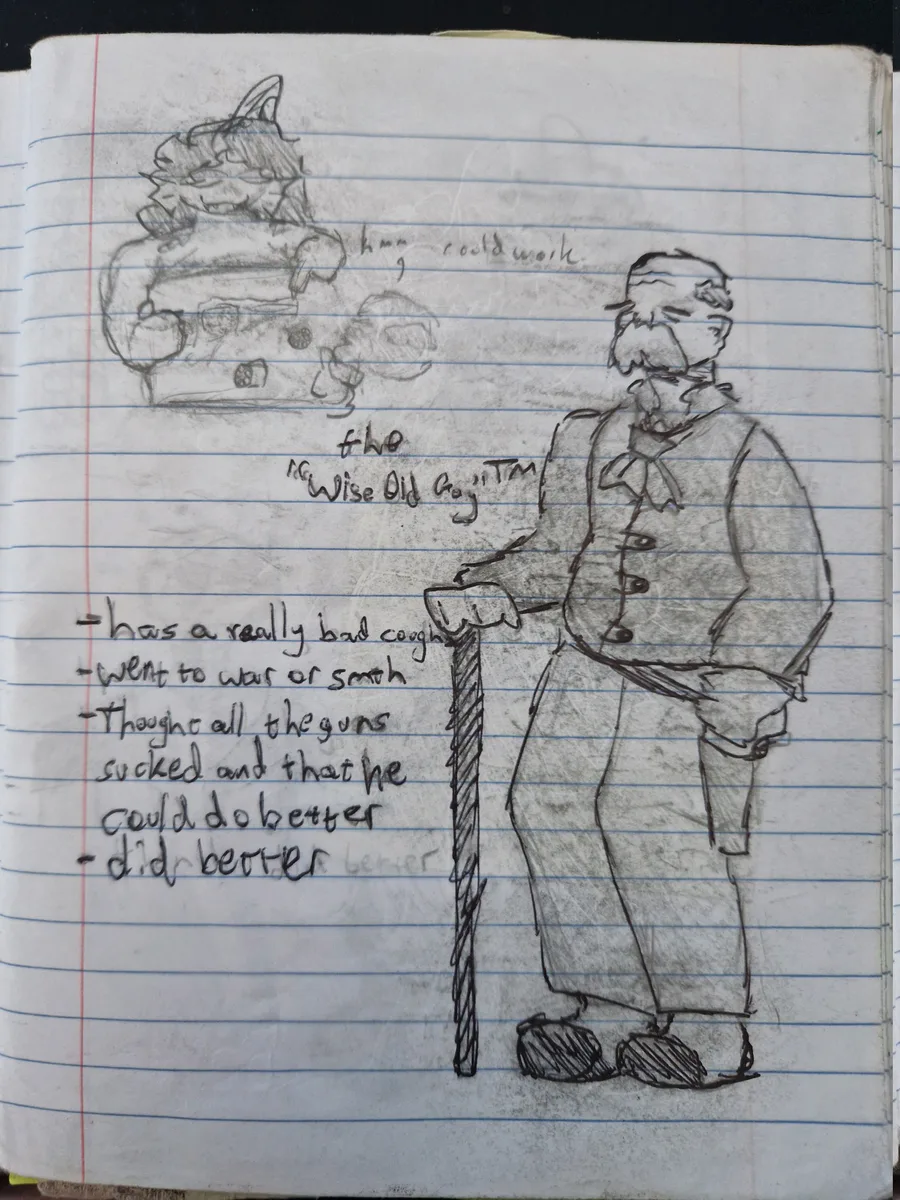 hmm, could work.
the
"Wise Old Guy"TM
- has a really bad cough
- went to war or smth
- Thought all the guns
sucked and that he
could do better
- did better